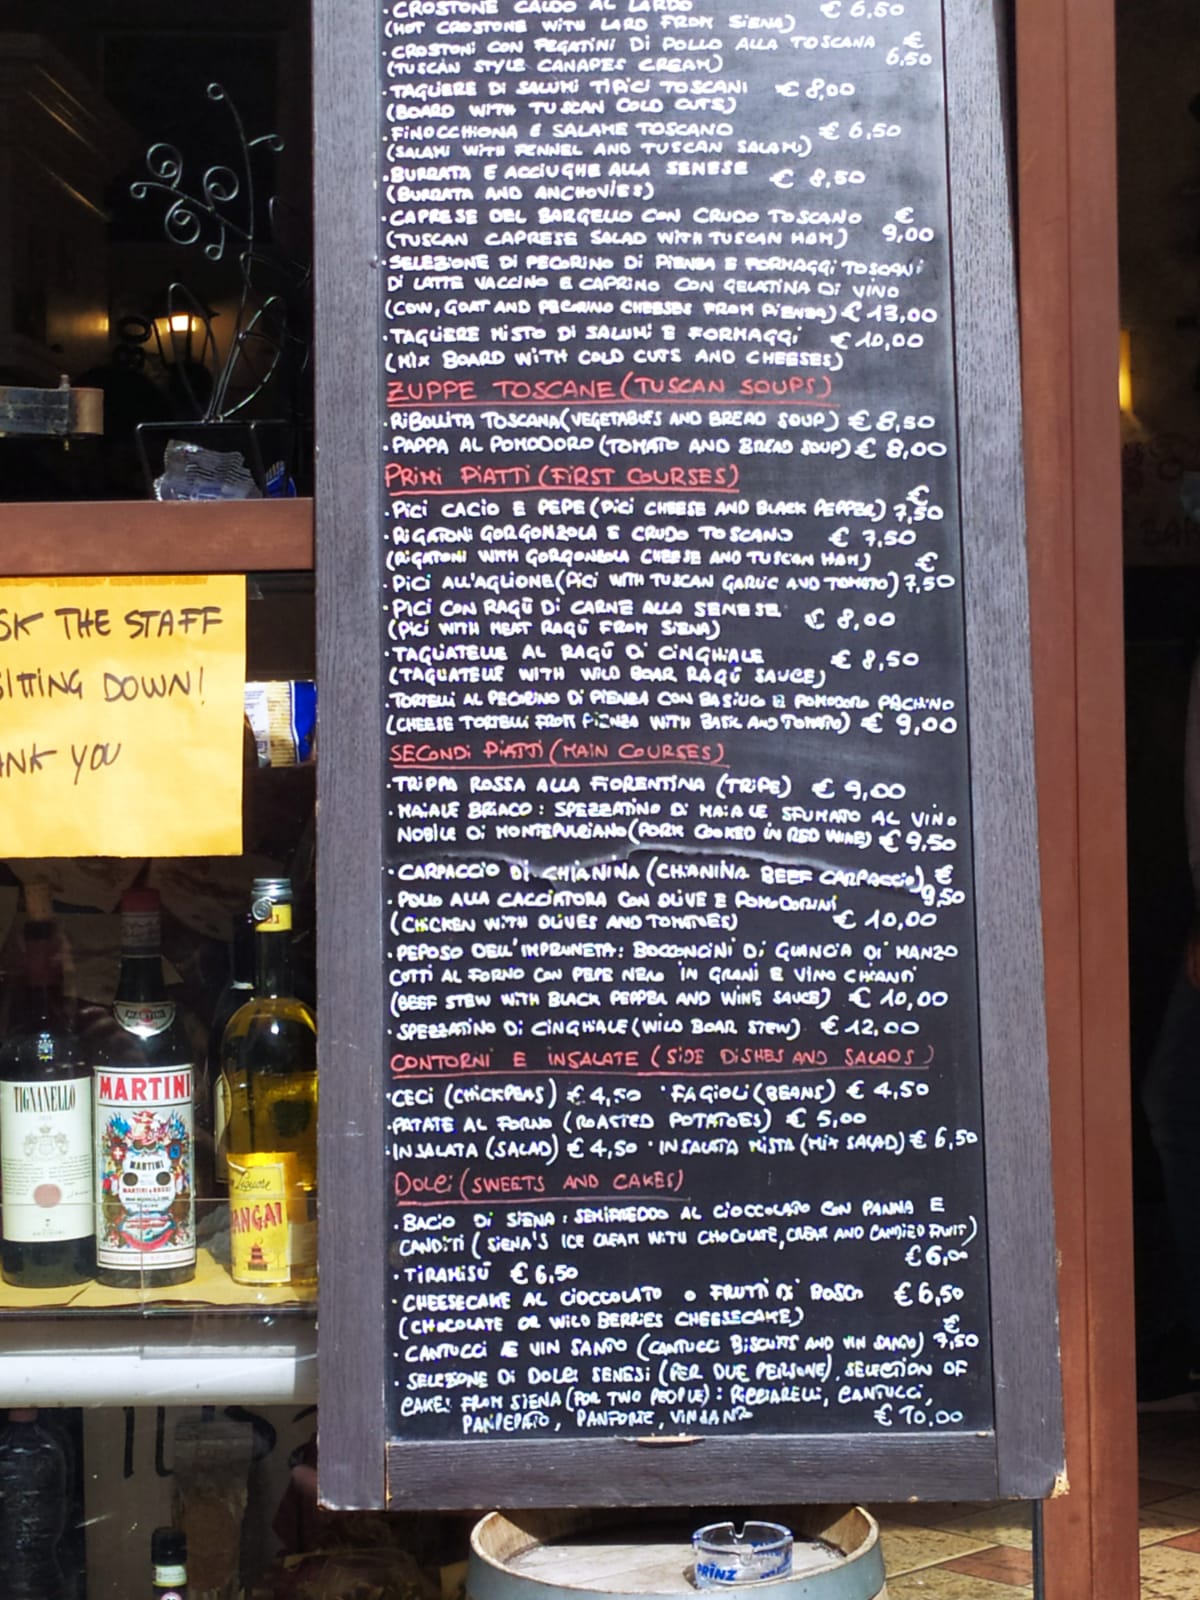 · CROSTONE CALDO AL LARDO € 6,50
(HOT CROSTONE WITH LARD FROM SIENA)
· CROSTONI CON FEGATINI DI POLLO ALLA TOSCANA €
(TUSCAN STYLE CANAPES CREAM) 6,50
· TAGLIERE DI SALUMI TIPICI TOSCANI € 8,00
(BOARD WITH TUSCAN COLD CUTS)
· FINOCCHIONA E SALAME TOSCANO € 6,50
(SALAMI WITH FENNEL AND TUSCAN SALAMI)
· BURRATA E ACCIUGHE ALLA SENESE € 8,50
(BURRATA AND ANCHOVIES)
· CAPRESE DEL BARGELLO CON CRUDO TOSCANO €
(TUSCAN CAPRESE SALAD WITH TUSCAN HAM) 9,00
· SELEZIONE DI PECORINO DI PIENZA E FORMAGGI TOSCANI
DI LATTE VACCINO E CAPRINO CON GELATINA DI VINO
(COW, GOAT AND PECORINO CHEESES FROM PIENZA) € 13,00
· TAGLIERE MISTO DI SALUMI E FORMAGGI € 10,00
(MIX BOARD WITH COLD CUTS AND CHEESES)
ZUPPE TOSCANE (TUSCAN SOUPS)
· RIBOLLITA TOSCANA (VEGETABLES AND BREAD SOUP) € 8,50
· PAPPA AL POMODORO (TOMATO AND BREAD SOUP) € 8,00
PRIMI PIATTI (FIRST COURSES)
€
· PICI CACIO E PEPE (PICI CHEESE AND BLACK PEPPER) 7,50
· RIGATONI GORGONZOLA E CRUDO TOSCANO € 7,50
(RIGATONI WITH GORGONZOLA CHEESE AND TUSCAN HAM) €
· PICI ALL'AGLIONE (PICI WITH TUSCAN GARLIC AND TOMATO) 7,50
· PICI CON RAGÙ DI CARNE ALLA SENESE € 8,00
(PICI WITH MEAT RAGÙ FROM SIENA)
· TAGLIATELLE AL RAGÙ DI CINGHIALE € 8,50
(TAGLIATELLE WITH WILD BOAR RAGÙ SAUCE)
· TORTELLI AL PECORINO DI PIENZA CON BASILICO E POMODORO PACHINO
(CHEESE TORTELLI FROM PIENZA WITH BASIL AND TOMATO) € 9,00
SECONDI PIATTI (MAIN COURSES)
· TRIPPA ROSSA ALLA FIORENTINA (TRIPE) € 9,00
· MAIALE BRIACO: SPEZZATINO DI MAIALE SFUMATO AL VINO
NOBILE DI MONTEPULCIANO (PORK COOKED IN RED WINE) € 9,50
· CARPACCIO DI CHIANINA (CHIANINA BEEF CARPACCIO) €
9,50
· POLLO ALLA CACCIATORA CON OLIVE E POMODORINI
(CHICKEN WITH OLIVES AND TOMATOES) € 10,00
· PEPOSO DELL'IMPRUNETA: BOCCONCINI DI GUANCIA DI MANZO
COTTI AL FORNO CON PEPE NERO IN GRANI E VINO CHIANTI
(BEEF STEW WITH BLACK PEPPER AND WINE SAUCE) € 10,00
· SPEZZATINO DI CINGHIALE (WILD BOAR STEW) € 12,00
CONTORNI E INSALATE (SIDE DISHES AND SALADS)
· CECI (CHICKPEAS) € 4,50 · FAGIOLI (BEANS) € 4,50
· PATATE AL FORNO (ROASTED POTATOES) € 5,00
· INSALATA (SALAD) € 4,50 · INSALATA MISTA (MIX SALAD) € 6,50
DOLCI (SWEETS AND CAKES)
· BACIO DI SIENA: SEMIFREDDO AL CIOCCOLATO CON PANNA E
CANDITI (SIENA'S ICE CREAM WITH CHOCOLATE, CREAM AND CANDIED FRUIT)
€ 6,00
· TIRAMISÙ € 6,50
· CHEESECAKE AL CIOCCOLATO O FRUTTI DI BOSCO € 6,50
(CHOCOLATE OR WILD BERRIES CHEESECAKE) €
· CANTUCCI E VIN SANTO (CANTUCCI BISCUITS AND VIN SANTO) 7,50
· SELEZIONE DI DOLCI SENESI (PER DUE PERSONE). SELECTION OF
CAKES FROM SIENA (FOR TWO PEOPLE): RICCIARELLI, CANTUCCI,
PANPEPATO, PANFORTE, VINSANTO € 10,00
SK THE STAFF
SITTING DOWN!
ANK YOU
TIGNANELLO
MARTINI
MARTINI
MARTINI
Liquore
ANGAI
PRINZ